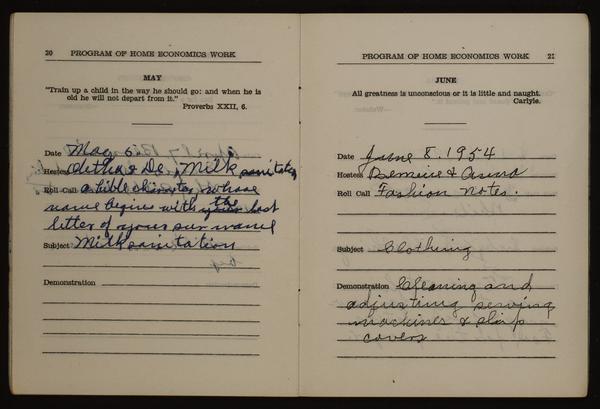 20 PROGRAM OF HOME ECONOMICS WORK
MAY
"Train up a child in the way he should go: and when he is
old he will not depart from it."
Proverbs XXII, 6.
Date May 6.
Hostess & De. Milk sanitation
Roll Call a bible character whose
name begins with the last
letter of your sur name
Subject Milk sanitation
Demonstration
PROGRAM OF HOME ECONOMICS WORK 21
JUNE
All greatness is unconscious or it is little and naught.
Carlyle.
Date June 8. 1954
Hostess Bernice &
Roll Call Fashion notes.
Subject Clothing
Demonstration Cleaning and
adjusting sewing
machines & slip
covers